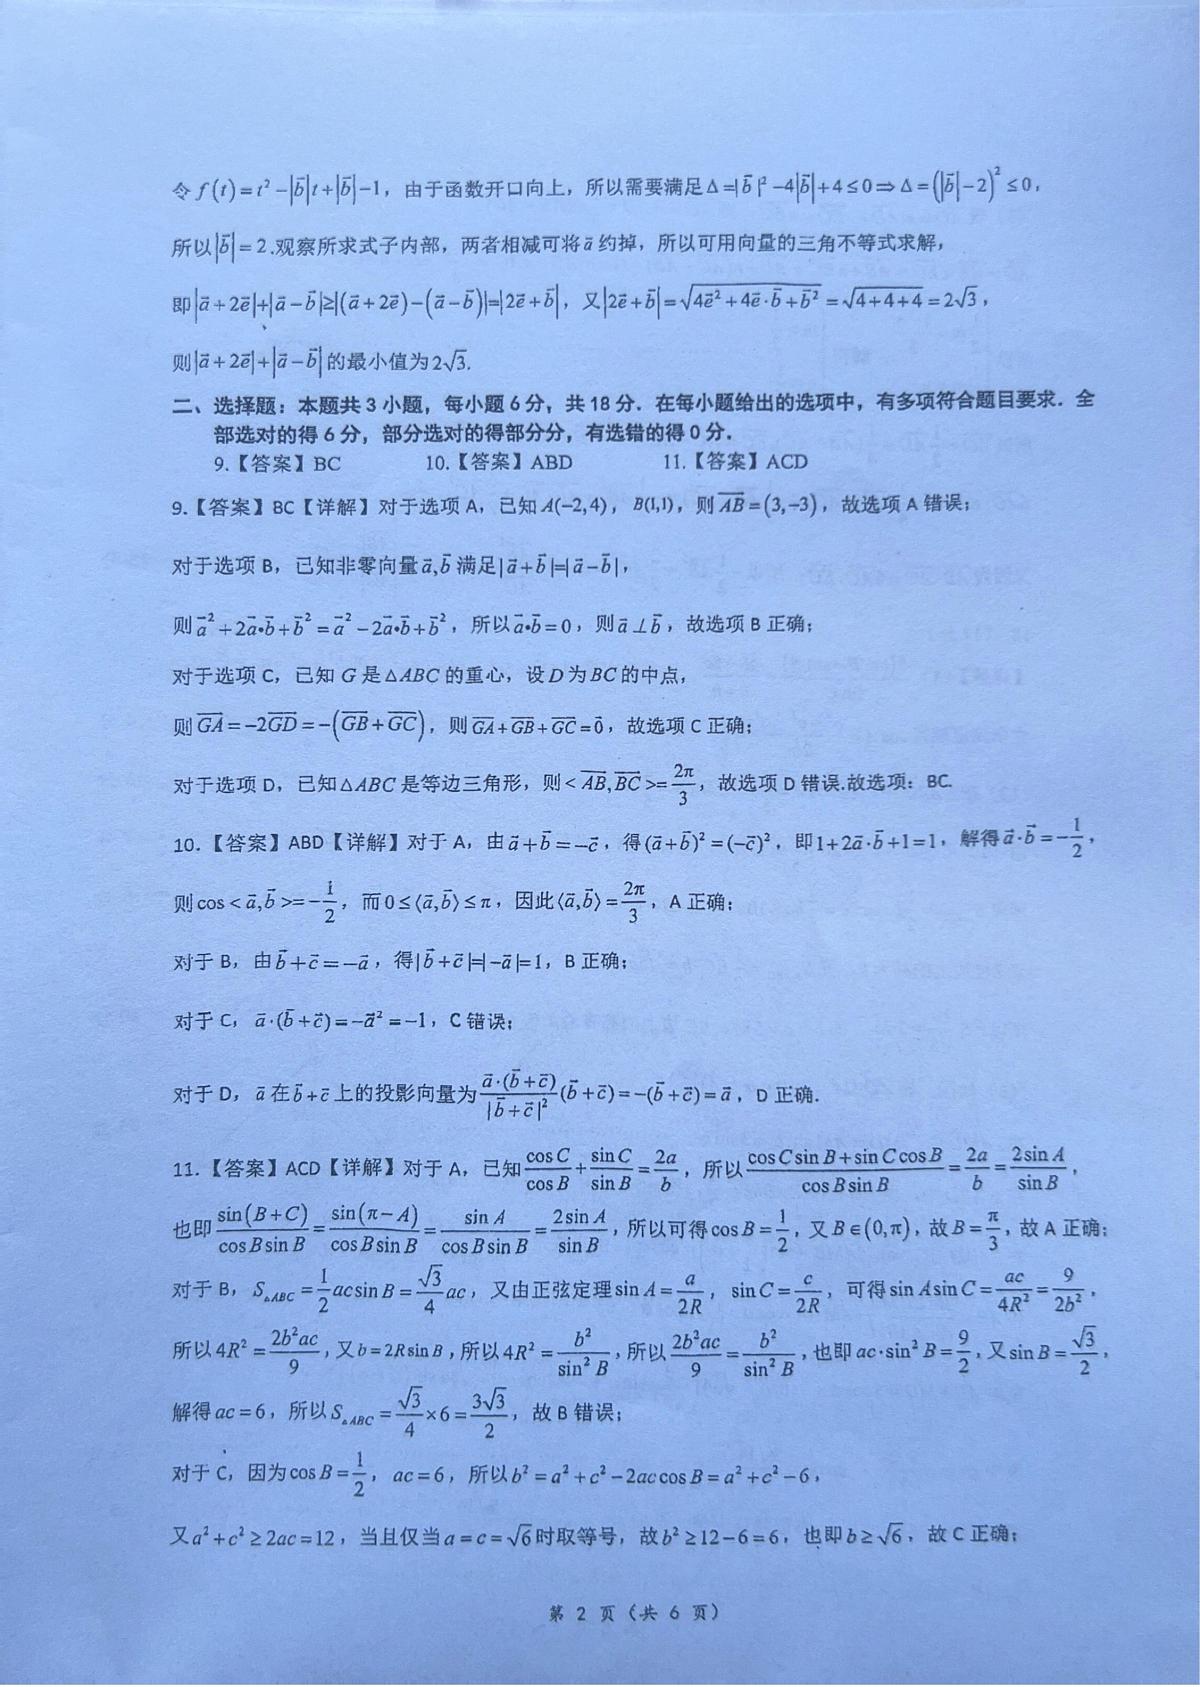 令 f(t)=t²−|b⃗|t+|b⃗|−1，由于函数开口向上，所以需要满足Δ=|b⃗|²−4|b⃗|+4≤0⇒Δ=(|b⃗|−2)²≤0，
所以|b⃗|=2.观察所求式子内部，两者相减可将a⃗约掉，所以可用向量的三角不等式求解，
即|a⃗+2e⃗|+|a⃗−b⃗|≥|(a⃗+2e⃗)−(a⃗−b⃗)|=|2e⃗+b⃗|，又|2e⃗+b⃗|=√(4e⃗²+4e⃗·b⃗+b⃗²)=√(4+4+4)=2√3，
则|a⃗+2e⃗|+|a⃗−b⃗|的最小值为2√3.
二、选择题：本题共3小题，每小题6分，共18分．在每小题给出的选项中，有多项符合题目要求．全
部选对的得6分，部分选对的得部分分，有选错的得0分．
9.【答案】BC 10.【答案】ABD 11.【答案】ACD
9.【答案】BC【详解】对于选项A，已知A(−2,4)，B(1,1)，则AB⃗=(3,−3)，故选项A错误；
对于选项B，已知非零向量a⃗,b⃗满足|a⃗+b⃗|=|a⃗−b⃗|，
则a⃗²+2a⃗•b⃗+b⃗²=a⃗²−2a⃗•b⃗+b⃗²，所以a⃗•b⃗=0，则a⃗⊥b⃗，故选项B正确；
对于选项C，已知G是△ABC的重心，设D为BC的中点，
则GA⃗=−2GD⃗=−(GB⃗+GC⃗)，则GA⃗+GB⃗+GC⃗=0⃗，故选项C正确；
对于选项D，已知△ABC是等边三角形，则<AB⃗,BC⃗>=2π/3，故选项D错误.故选项：BC.
10.【答案】ABD【详解】对于A，由a⃗+b⃗=−c⃗，得(a⃗+b⃗)²=(−c⃗)²，即1+2a⃗·b⃗+1=1，解得a⃗·b⃗=−1/2，
则cos<a⃗,b⃗>=−1/2，而0≤⟨a⃗,b⃗⟩≤π，因此⟨a⃗,b⃗⟩=2π/3，A正确；
对于B，由b⃗+c⃗=−a⃗，得|b⃗+c⃗|=|−a⃗|=1，B正确；
对于C，a⃗·(b⃗+c⃗)=−a⃗²=−1，C错误；
对于D，a⃗在b⃗+c⃗上的投影向量为a⃗·(b⃗+c⃗)/|b⃗+c⃗|²(b⃗+c⃗)=−(b⃗+c⃗)=a⃗，D正确.
11.【答案】ACD【详解】对于A，已知cosC/cosB+sinC/sinB=2a/b，所以(cosCsinB+sinCcosB)/(cosBsinB)=2a/b=2sinA/sinB，
也即sin(B+C)/(cosBsinB)=sin(π−A)/(cosBsinB)=sinA/(cosBsinB)=2sinA/sinB，所以可得cosB=1/2，又B∈(0,π)，故B=π/3，故A正确；
对于B，S△ABC=1/2acsinB=√3/4ac，又由正弦定理sinA=a/2R，sinC=c/2R，可得sinAsinC=ac/4R²=9/2b²，
所以4R²=2b²ac/9，又b=2RsinB，所以4R²=b²/sin²B，所以2b²ac/9=b²/sin²B，也即ac·sin²B=9/2，又sinB=√3/2，
解得ac=6，所以S△ABC=√3/4×6=3√3/2，故B错误；
对于C，因为cosB=1/2，ac=6，所以b²=a²+c²−2accosB=a²+c²−6，
又a²+c²≥2ac=12，当且仅当a=c=√6时取等号，故b²≥12−6=6，也即b≥√6，故C正确；
第 2 页（共 6 页）